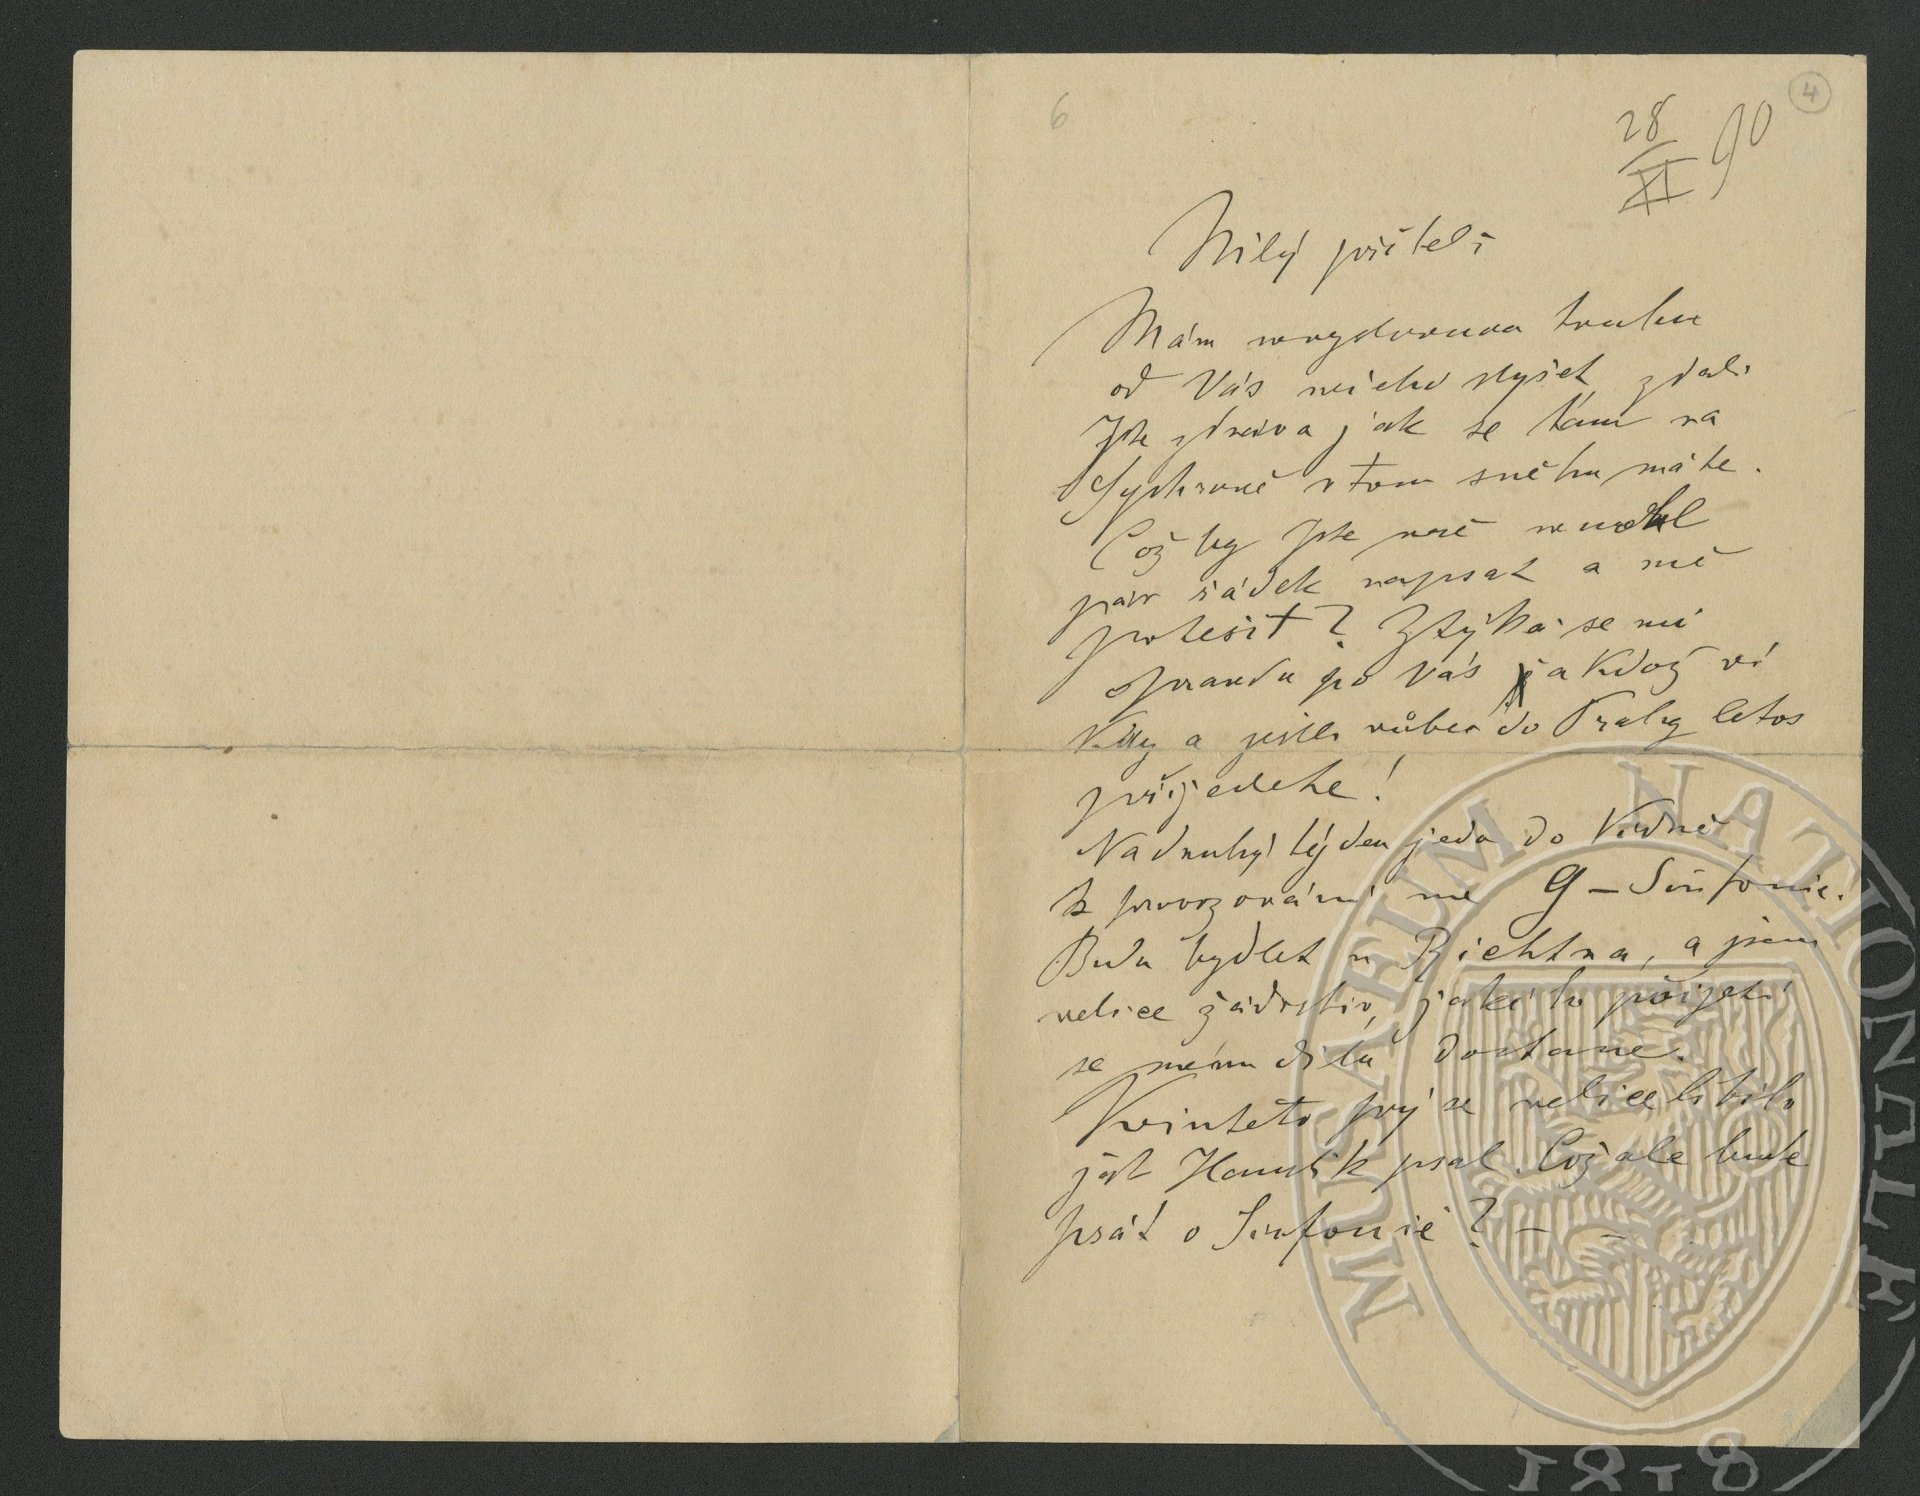 6
4
28
XI 90
Milý příteli
Mám nevyslovnou touhu
od Vás něčeho slyšet zdali
Jste zdráva jak se tam na
Sychrově v tom sněhu máte.
Což by Jste ně
pár řádek napsat a mě
potešit? Ztýká se mi
opravdu po Vás a kdož ví
kdy a jestli vůbec do Prahy letos
přijedete!
Na druhý týden jedu do Vídně
k provozování mé G-Sinfonie.
Budu bydlet u Richtra, a jsem
velice žádostiv, jakého přijetí
se mému dílu dostane.
Kvinteto prý se velice líbilo
jak Hanslik psal. Což ale bude
psát o Sinfonii? —
MUSAEUM NATIONALE
1818